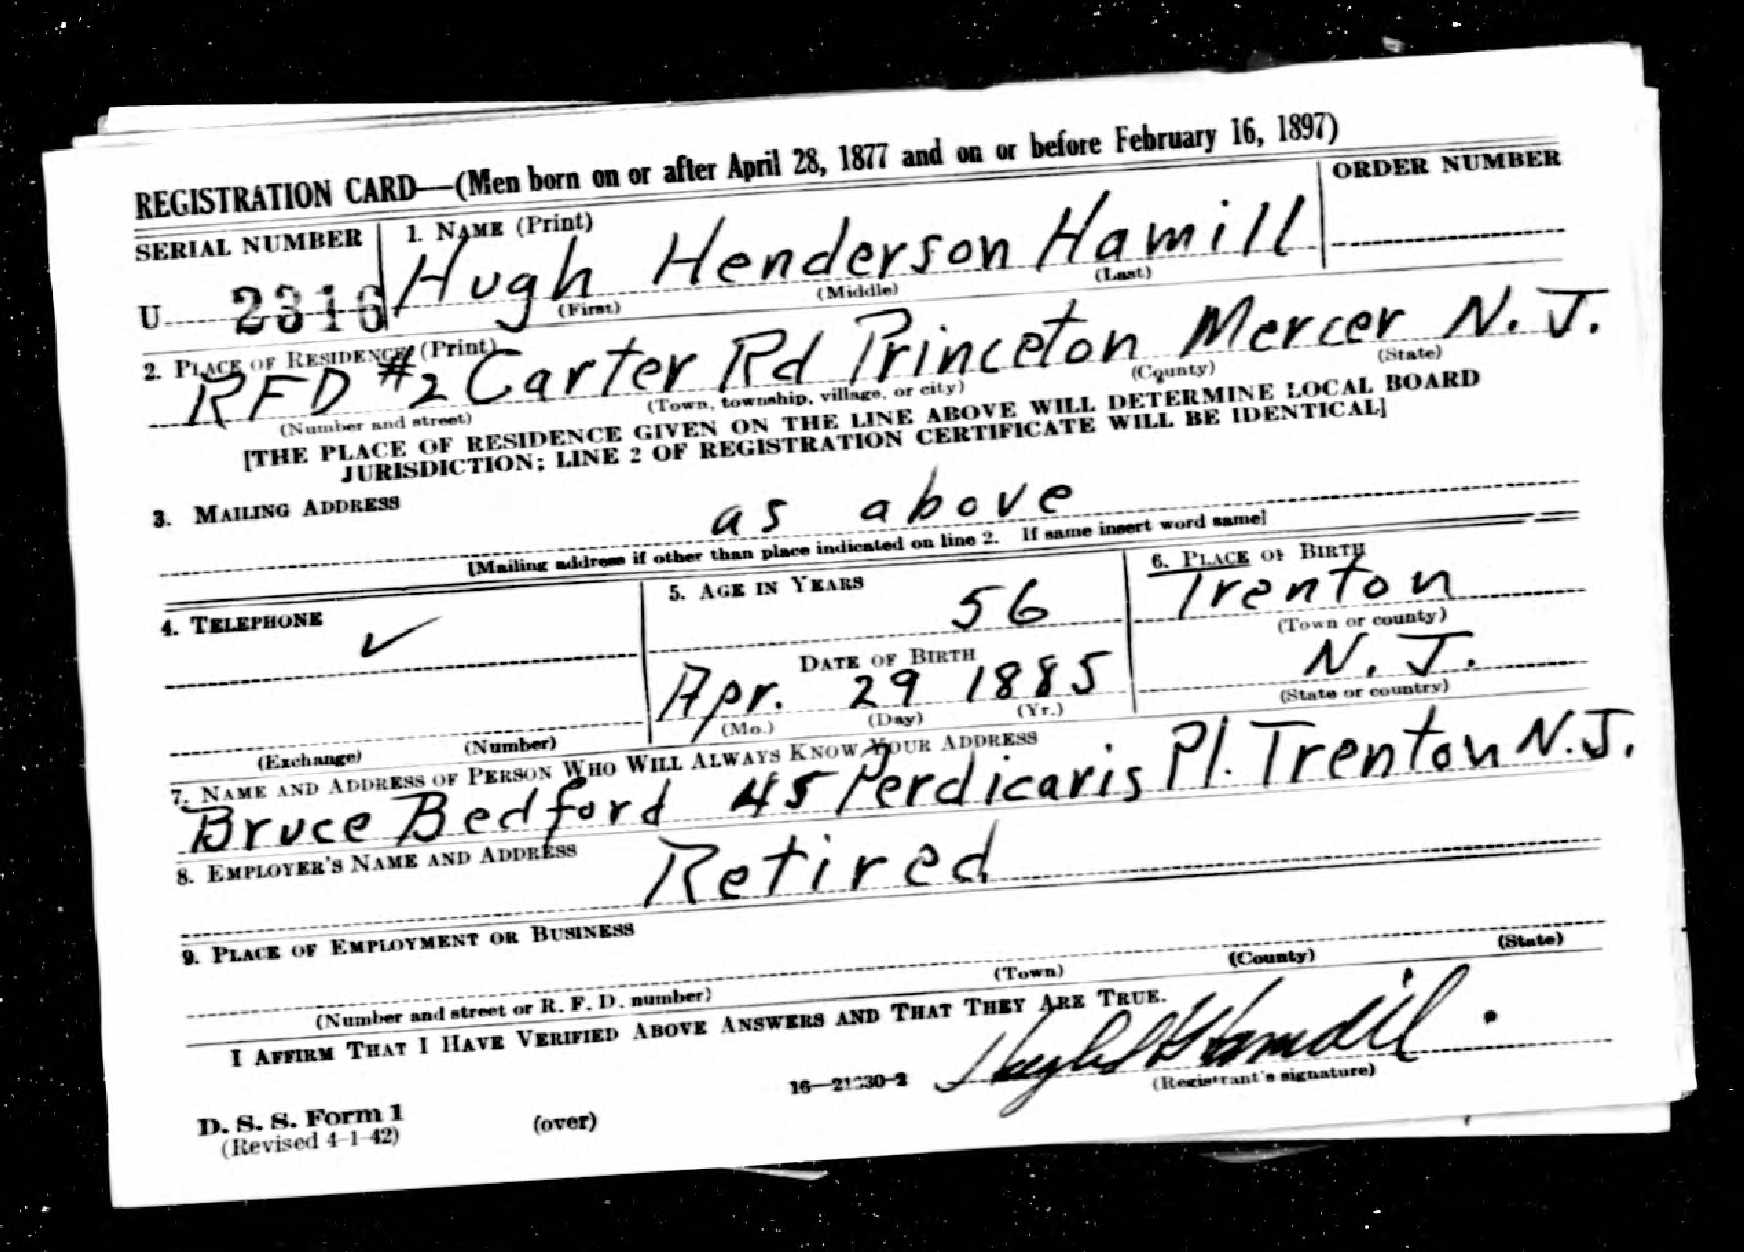 REGISTRATION CARD—(Men born on or after April 28, 1877 and on or before February 16, 1897)
SERIAL NUMBER
1. NAME (Print)
ORDER NUMBER
U 2316
Hugh Henderson Hamill
(First) (Middle) (Last)
2. PLACE OF RESIDENCE (Print)
RFD #2 Carter Rd Princeton Mercer N.J.
(Number and street) (Town, township, village, or city) (County) (State)
[THE PLACE OF RESIDENCE GIVEN ON THE LINE ABOVE WILL DETERMINE LOCAL BOARD
JURISDICTION; LINE 2 OF REGISTRATION CERTIFICATE WILL BE IDENTICAL]
3. MAILING ADDRESS
as above
[Mailing address if other than place indicated on line 2. If same insert word same]
4. TELEPHONE
✓
(Exchange) (Number)
5. AGE IN YEARS
56
DATE OF BIRTH
Apr. 29 1885
(Mo.) (Day) (Yr.)
6. PLACE OF BIRTH
Trenton
(Town or county)
N. J.
(State or country)
7. NAME AND ADDRESS OF PERSON WHO WILL ALWAYS KNOW YOUR ADDRESS
Bruce Bedford 45 Perdicaris Pl. Trenton N.J.
8. EMPLOYER'S NAME AND ADDRESS
Retired
9. PLACE OF EMPLOYMENT OR BUSINESS
(Number and street or R. F. D. number) (Town) (County) (State)
I AFFIRM THAT I HAVE VERIFIED ABOVE ANSWERS AND THAT THEY ARE TRUE.
Hugh H Hamill.
(Registrant's signature)
D. S. S. Form 1
(Revised 4-1-42)
(over)